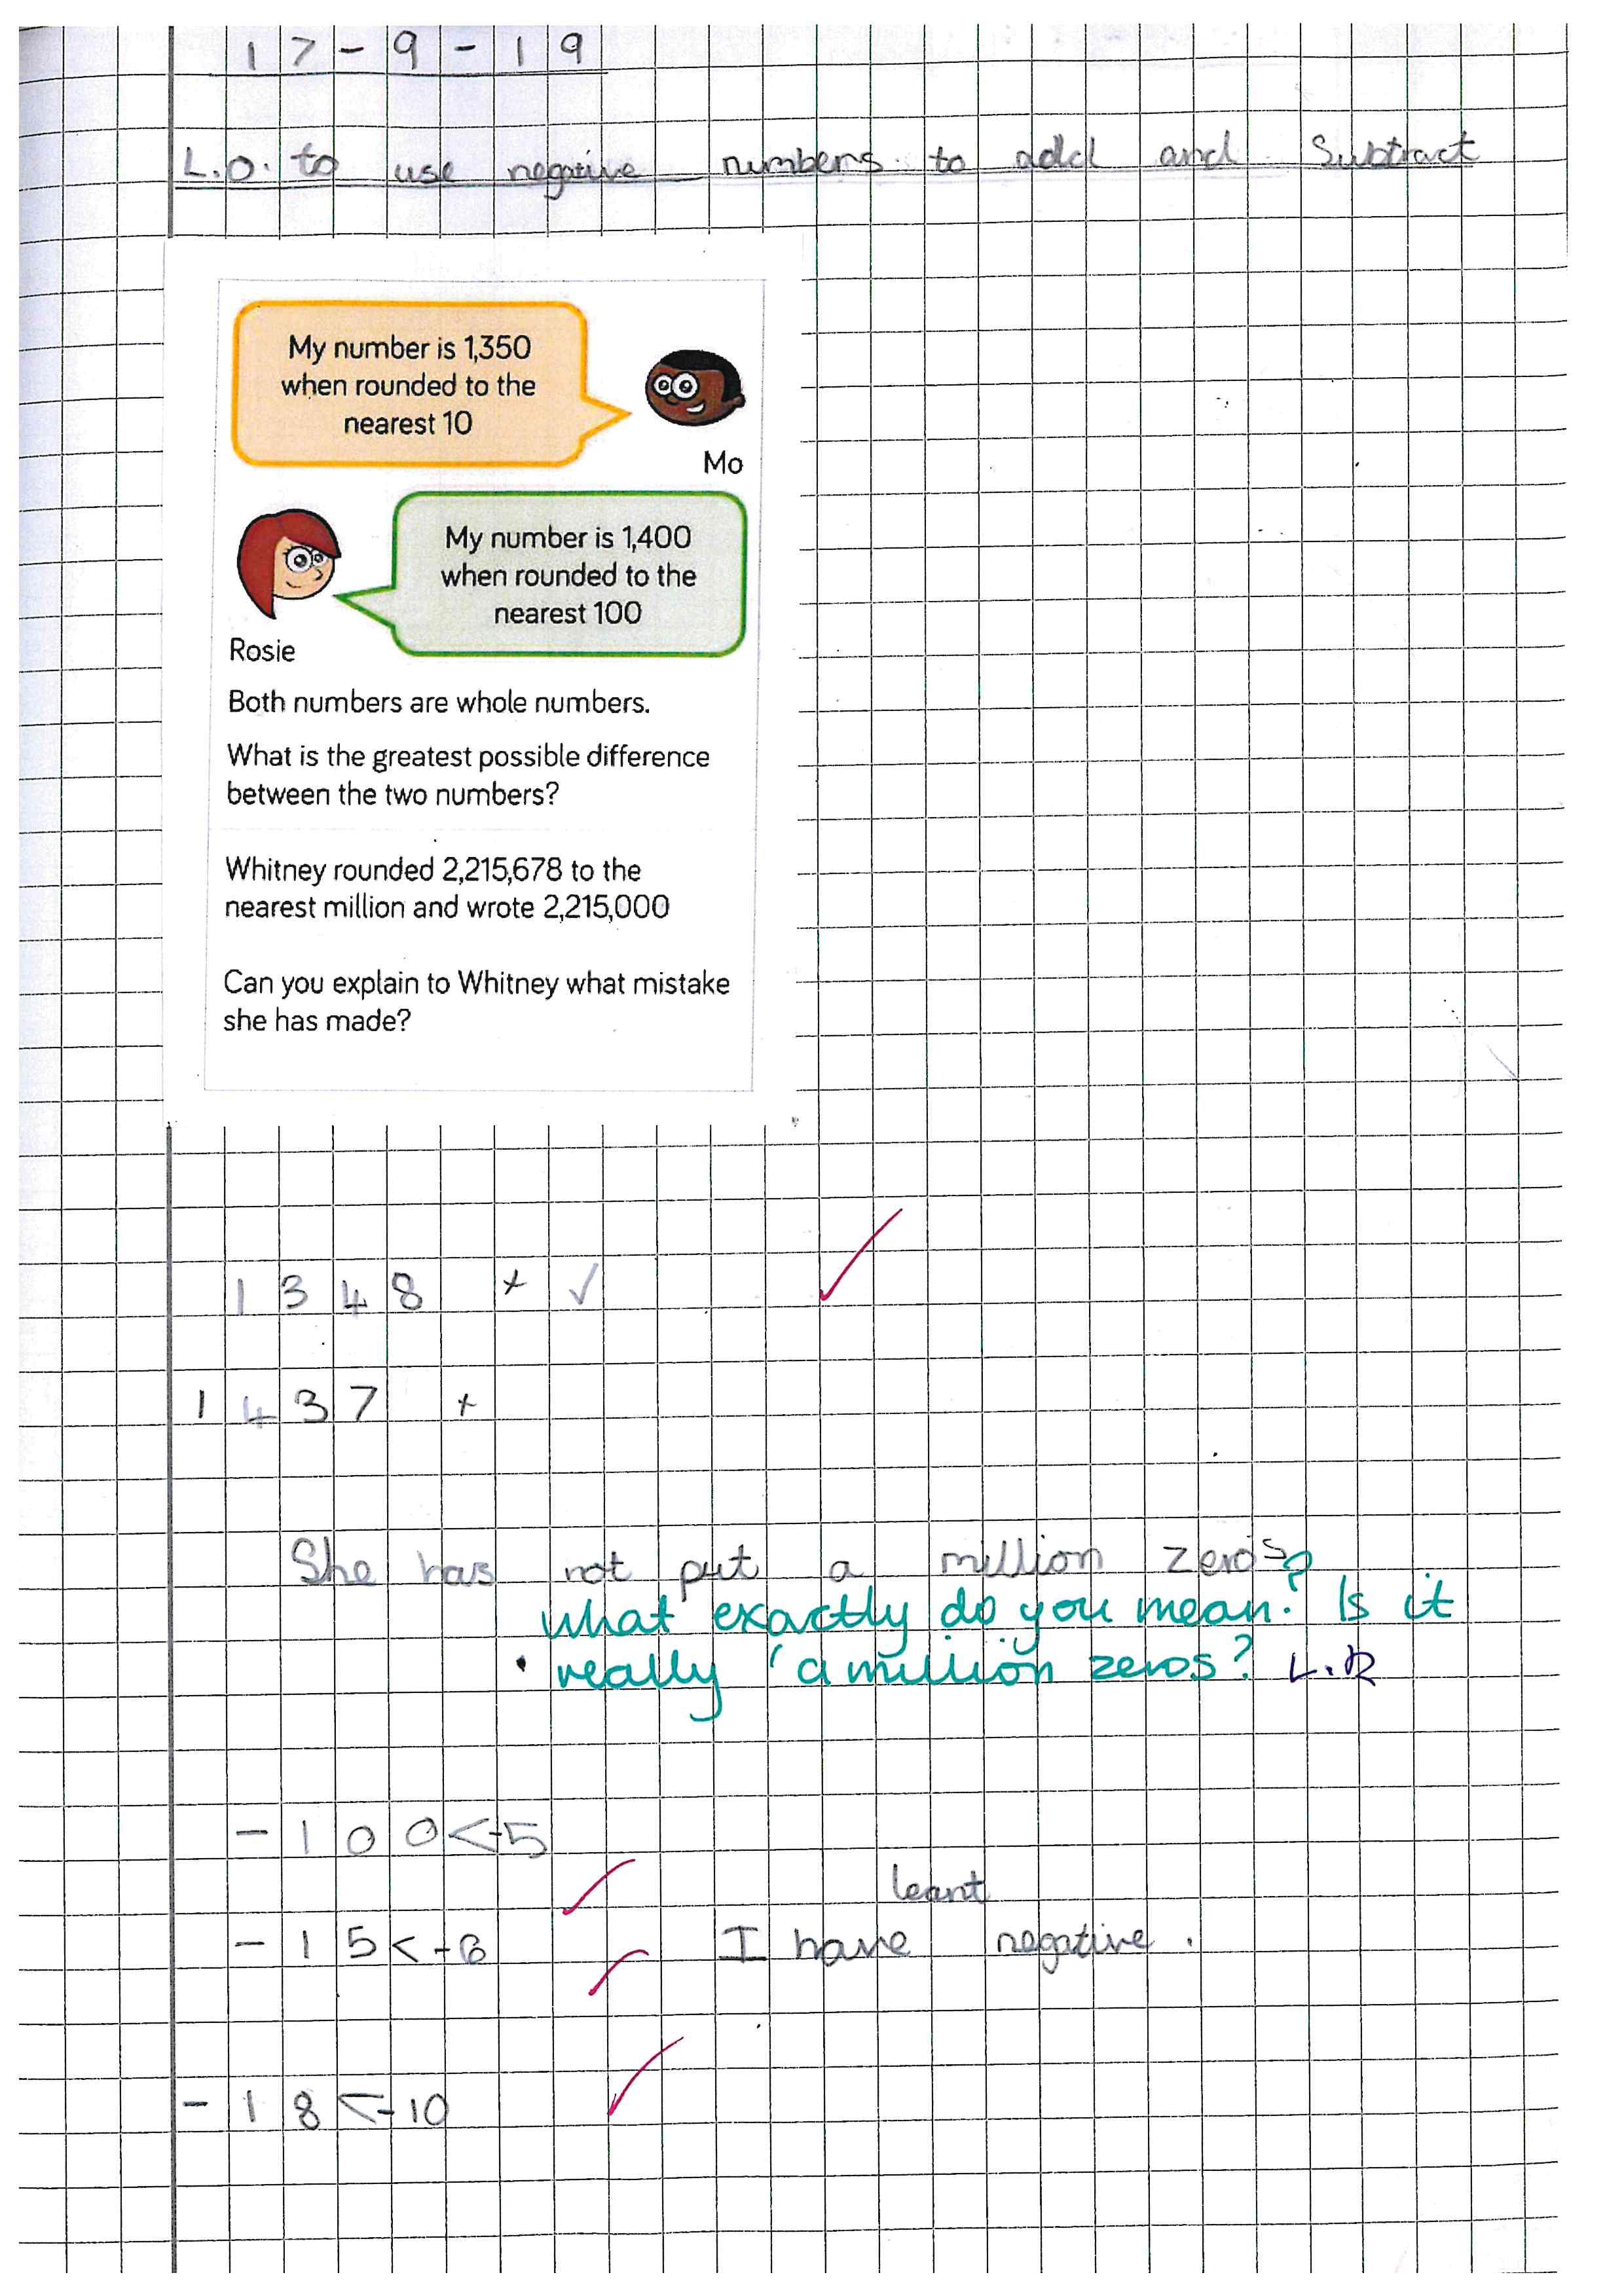 17-9-19
L.O. to use negative numbers to add and Subtract
My number is 1,350
when rounded to the
nearest 10
Mo
My number is 1,400
when rounded to the
nearest 100
Rosie
Both numbers are whole numbers.
What is the greatest possible difference
between the two numbers?
Whitney rounded 2,215,678 to the
nearest million and wrote 2,215,000
Can you explain to Whitney what mistake
she has made?
1348 + ✓
1437 +
She has not put a million zeros
what exactly do you mean? Is it
really 'a million zeros? L.R
-100<-5
learnt
-15<-6 I have negative.
-18<-10